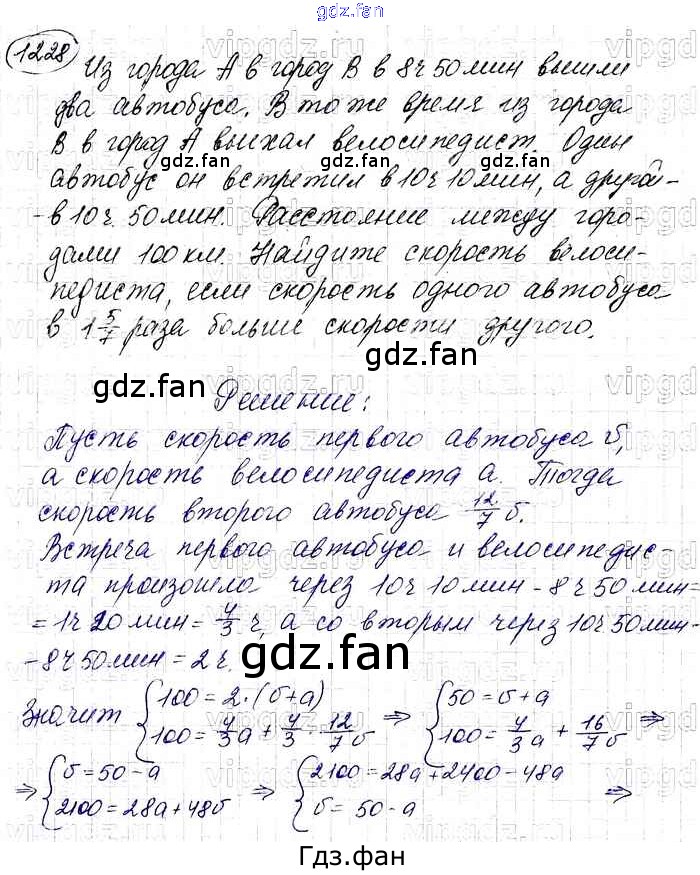 gdz.fan
1228
Из города А в город В в 8ч 50 мин вышли
два автобуса. В то же время из города
В в город А выехал велосипедист. Один
автобус он встретил в 10ч 10 мин, а другой -
- в 10ч. 50 мин. Расстояние между горо-
дами 100 км. Найдите скорость велоси-
педиста, если скорость одного автобуса
в 1 5/7 раза больше скорости другого.
Решение:
Пусть скорость первого автобуса б,
а скорость велосипедиста а. Тогда
скорость второго автобуса 12/7 б.
Встреча первого автобуса и велосипедис-
та произошла через 10ч 10 мин - 8ч 50 мин =
= 1ч 20 мин = 4/3 ч, а со вторым через 10ч 50 мин -
- 8ч 50 мин = 2 ч.
Значит { 100 = 2·(б+а) 100 = 4/3 а + 4/3 · 12/7 б ⇒ { 50 = б+а 100 = 4/3 а + 16/7 б ⇒
⇒ { б = 50 - а 2100 = 28а + 48б ⇒ { 2100 = 28а + 2400 - 48а б = 50 - а ⇒
gdz.fan
gdz.fan
gdz.fan
gdz.fan
gdz.fan
Гдз.фан